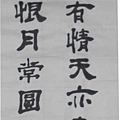 有情天亦
恨月常圓